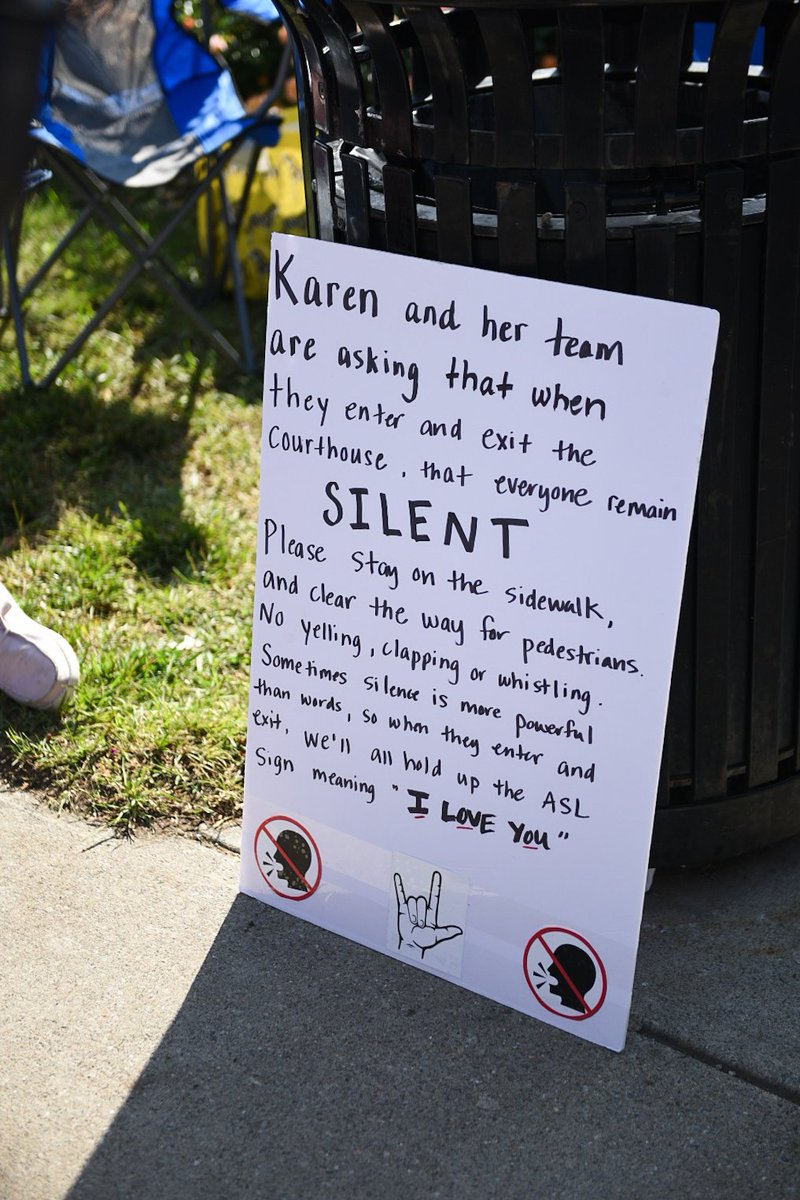 Karen and her team
are asking that when
they enter and exit the
Courthouse, that everyone remain
SILENT
Please stay on the sidewalk,
and clear the way for pedestrians.
No yelling, clapping or whistling.
Sometimes silence is more powerful
than words, so when they enter and
exit, we'll all hold up the ASL
Sign meaning "I LOVE YOU"